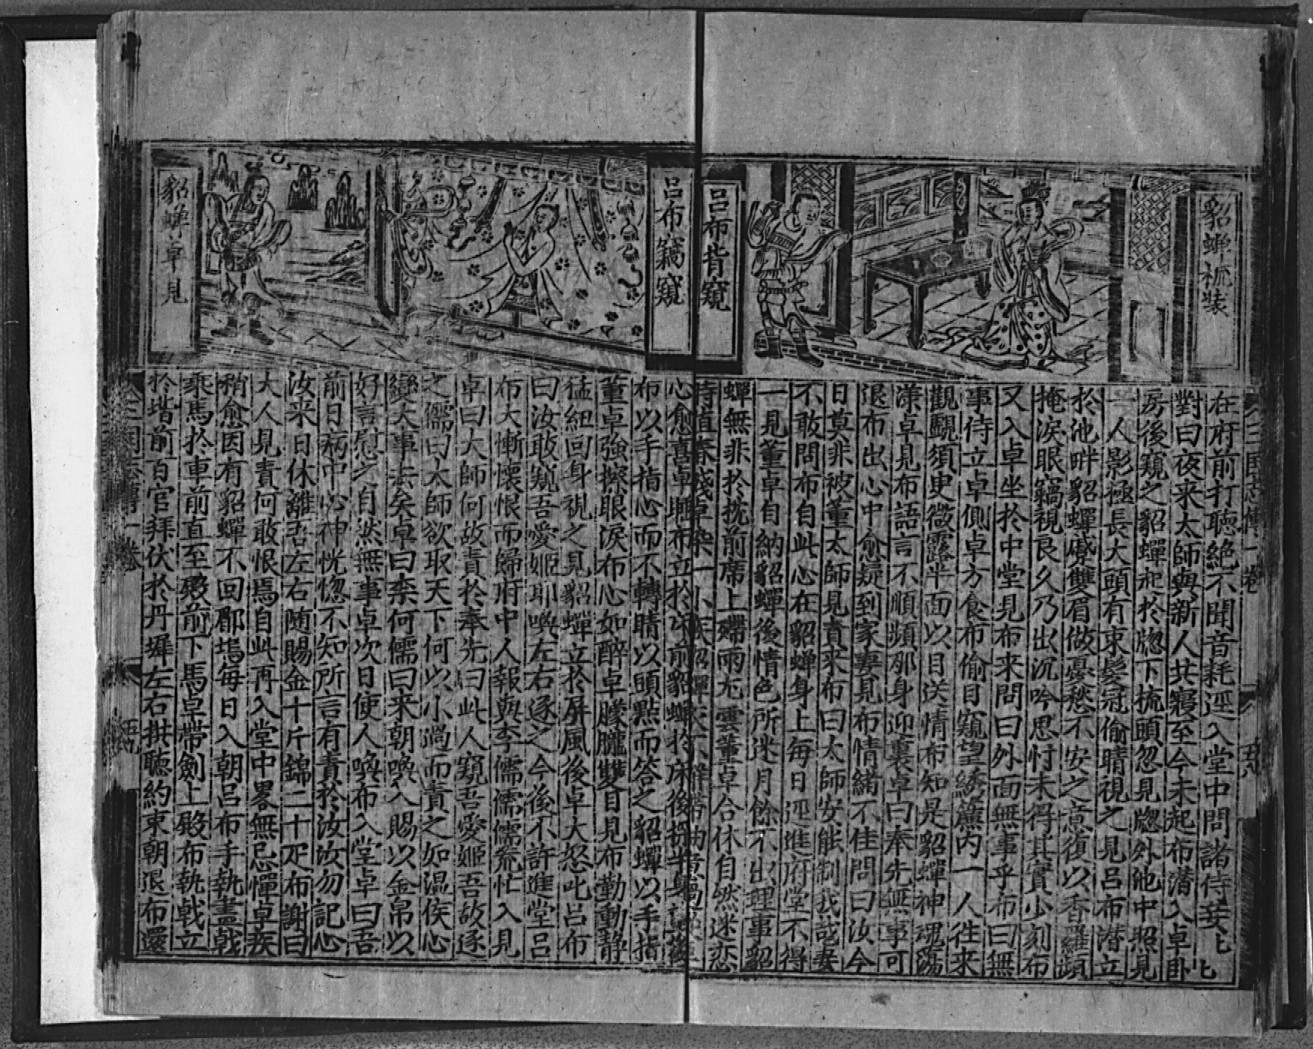 貂蟬梳裝
呂布背窺
在府前打聽絕不聞音耗逕入堂中問諸侍妾匕匕
對曰夜來太師與新人共寢至今未起布潛入卓卧
房後窺之貂蟬起於牕下梳頭忽見牕外池中照見
一人影極長大頭有束髮冠偷睛視之見呂布潛立
於池畔貂蟬蹙雙眉做憂愁不安之意復以香羅頻
掩淚眼竊視良久乃出沉吟思忖未得其實少刻布
又入卓坐於中堂見布來問曰外面無事乎布曰無
事侍立卓側卓方食布偷目窺望綉簾內一人往來
觀覷須臾微露半面以目送情布知是貂蟬神魂蕩
漾卓見布語言不順頻那身迎裏卓曰奉先無事可
退布出心中愈疑到家妻見布情緒不佳問曰汝今
日莫非被董太師見責來布曰太師安能制我哉妻
不敢問布自此心在貂蟬身上每日逕進府堂不得
一見董卓自納貂蟬後情色所迷月餘不出理事貂
蟬無非於枕前席上殢雨尤雲董卓合休自然迷戀
時值春殘卓染一小疾貂蟬衣不解帶
心愈喜卓睡布立於床前貂蟬於床後探半身
布以手指心而不轉睛以頭點而答之貂蟬以手指
董卓強擦眼淚布心如醉卓朦朧雙目見布動靜
猛紐回身視之見貂蟬立於屏風後卓大怒叱呂布
曰汝敢窺吾愛姬耶喚左右逐之今後不許進堂呂
布大慚懷恨而歸府中人報與李儒儒荒忙入見
卓曰大師何故責於奉先曰此人窺吾愛姬吾故逐
之儒曰太師欲取天下何以小過而責之如溫侯心
變大事去矣卓曰柰何儒曰來朝喚入賜以金帛以
好言慰之自然無事卓次日使人喚布入堂卓曰吾
前日病中心神恍惚不知所言有責於汝汝勿記心
汝來日休離吾左右随賜金十斤錦二十疋布謝曰
大人見責何敢恨焉自此再入堂中畧無忌憚卓疾
稍愈因有貂蟬不回郿塢每日入朝呂布手執畫戟
乘馬於車前直至殿前下馬卓帶劍上殿布執戟立
於堦前百官拜伏於丹墀左右拱聽約束朝退布還
呂布竊窺
貂蟬卓見